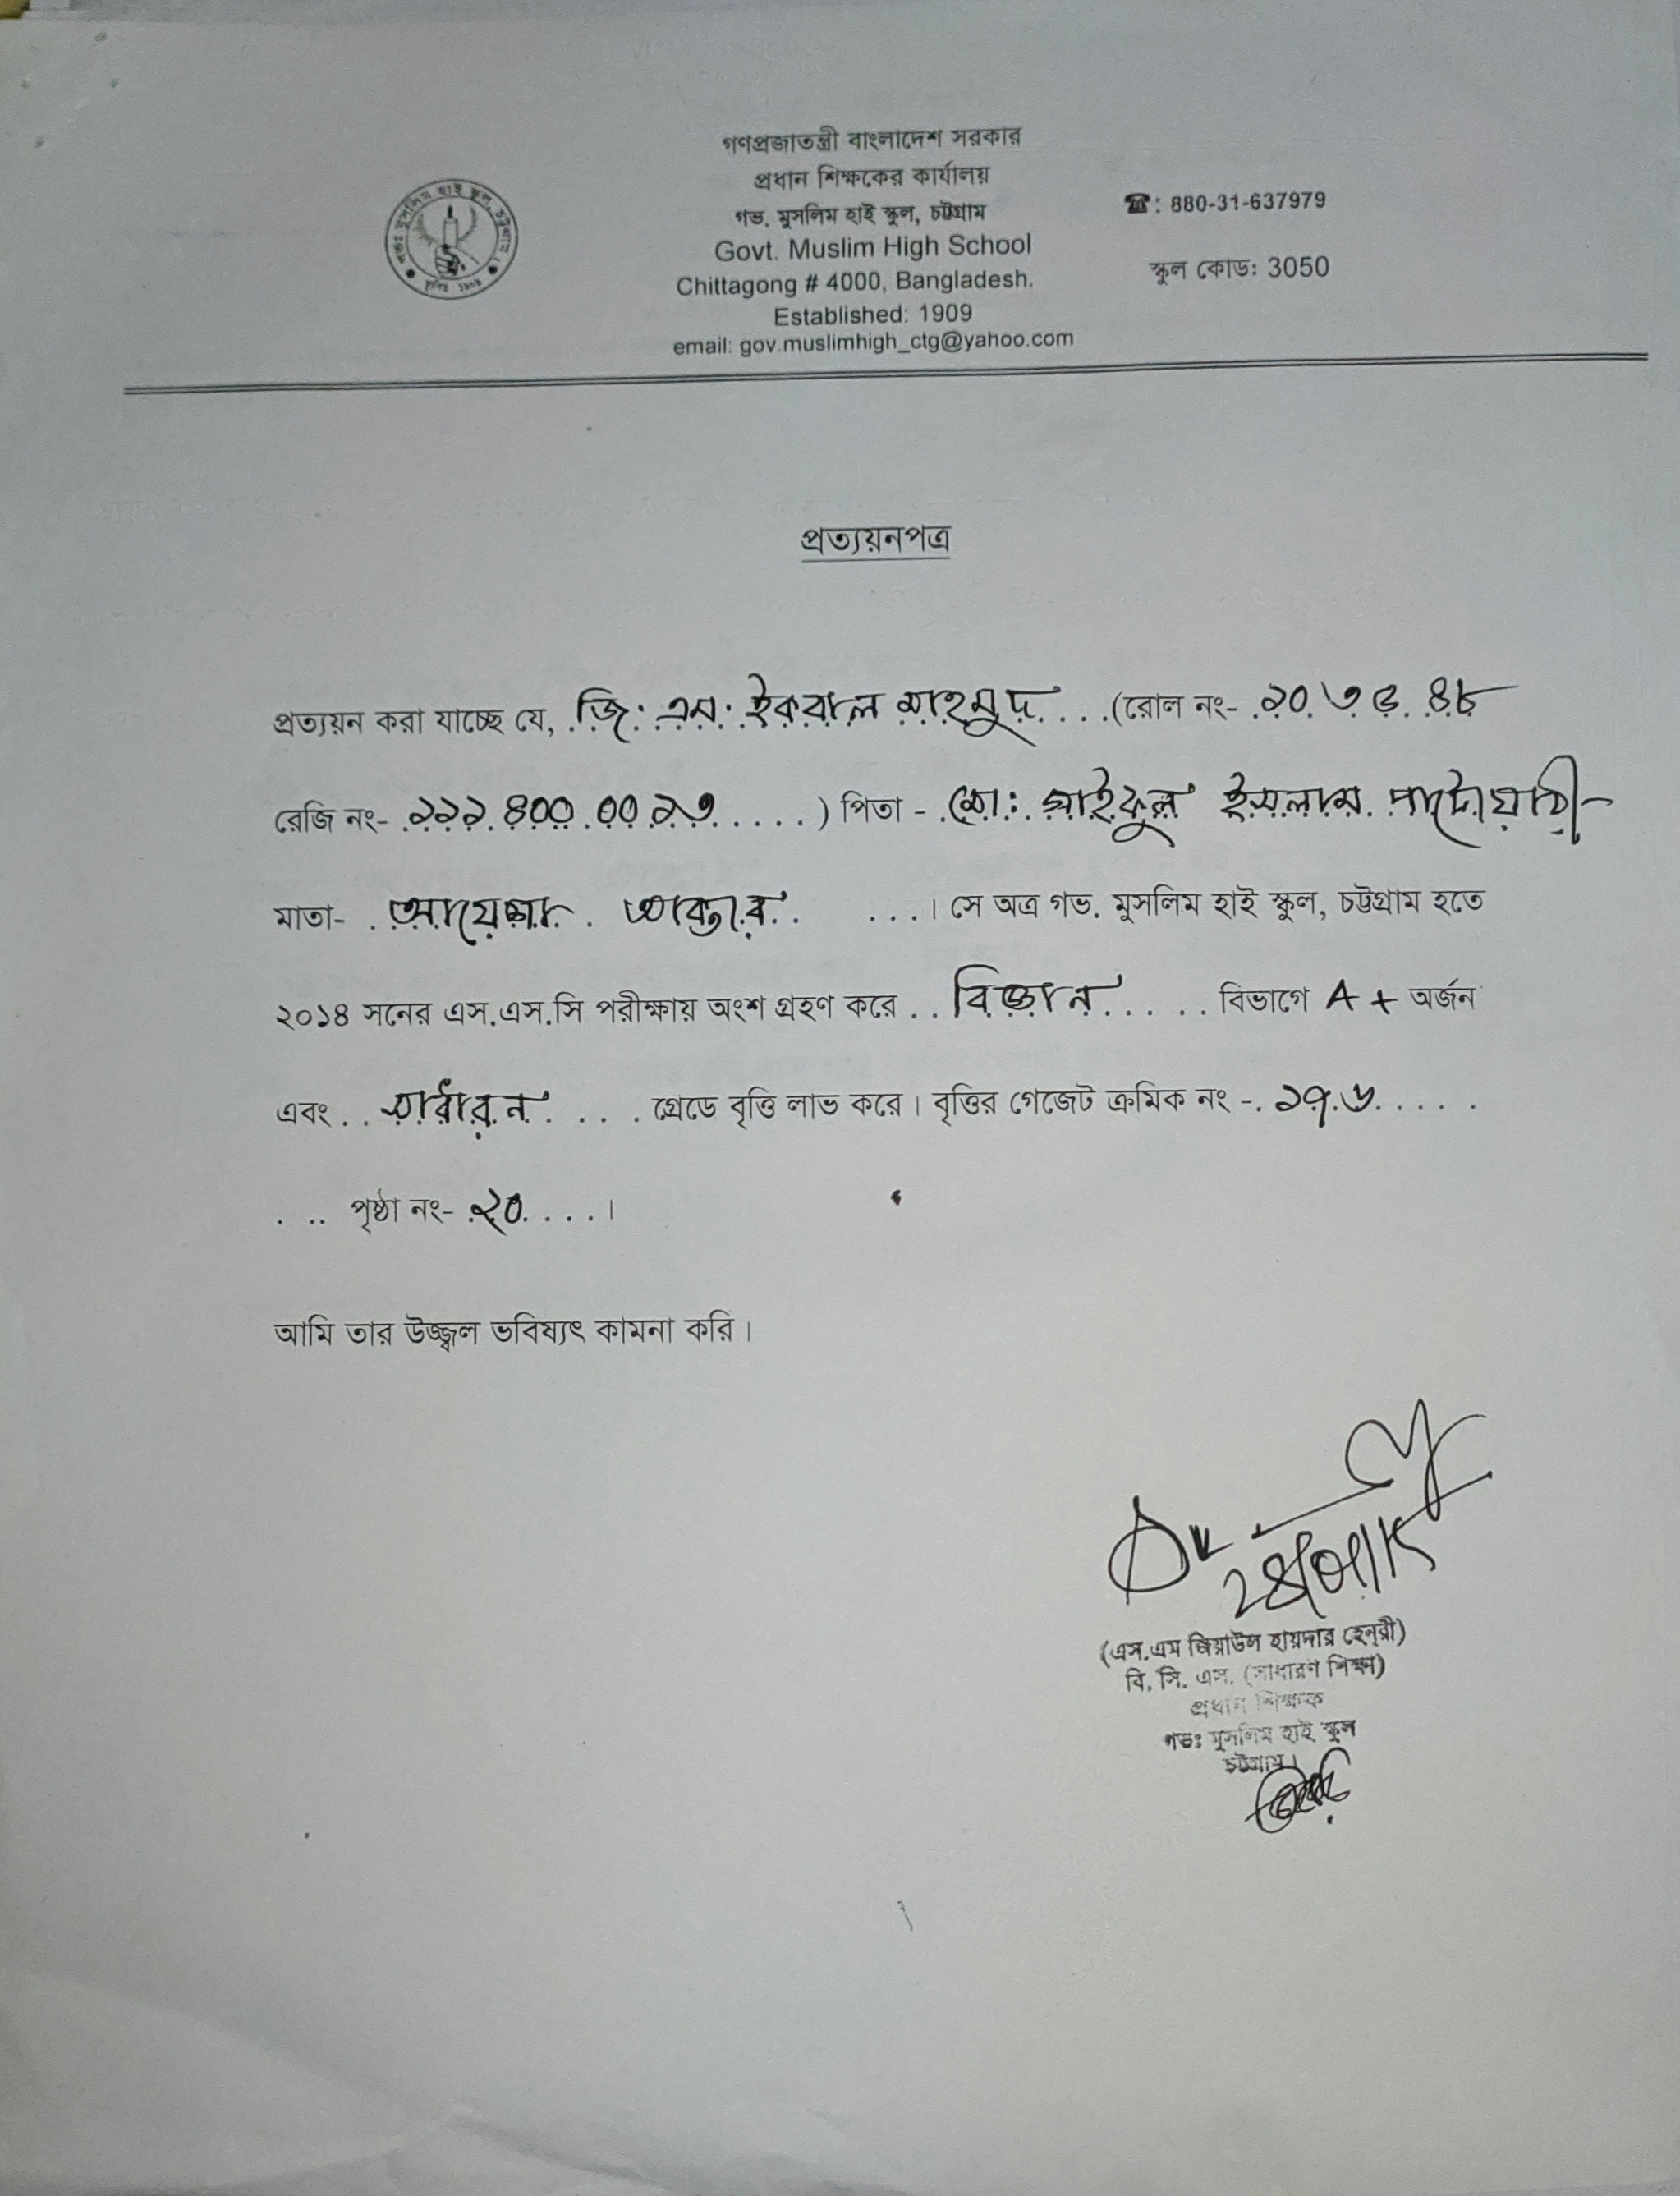 গণপ্রজাতন্ত্রী বাংলাদেশ সরকার
প্রধান শিক্ষকের কার্যালয়
গভ. মুসলিম হাই স্কুল, চট্টগ্রাম
Govt. Muslim High School
Chittagong # 4000, Bangladesh.
Established: 1909
email: gov.muslimhigh_ctg@yahoo.com
☎: 880-31-637979
স্কুল কোড: 3050
গভঃ মুসলিম হাই স্কুল, চট্টগ্রাম।
স্থাপিত ১৯০৯
প্রত্যয়নপত্র
প্রত্যয়ন করা যাচ্ছে যে, জি. এম. ইকবাল মাহমুদ ....(রোল নং- ১০৩৫৪৮
রেজি নং- ১১১৪০০০০১৩ .....) পিতা - মো: সাইফুল ইসলাম পাটোয়ারী-
মাতা- আয়েশা আক্তার .. ....। সে অত্র গভ. মুসলিম হাই স্কুল, চট্টগ্রাম হতে
২০১৪ সনের এস.এস.সি পরীক্ষায় অংশ গ্রহণ করে .. বিজ্ঞান ..... বিভাগে A+ অর্জন
এবং .. সাধারন .... গ্রেডে বৃত্তি লাভ করে। বৃত্তির গেজেট ক্রমিক নং -. ১৭৬ .....
. .. পৃষ্ঠা নং- ২০ ....।
আমি তার উজ্জ্বল ভবিষ্যৎ কামনা করি।
(এস.এম জিয়াউল হায়দার হেনরী)
বি. সি. এস. (সাধারণ শিক্ষা)
প্রধান শিক্ষক
গভঃ মুসলিম হাই স্কুল
চট্টগ্রাম।